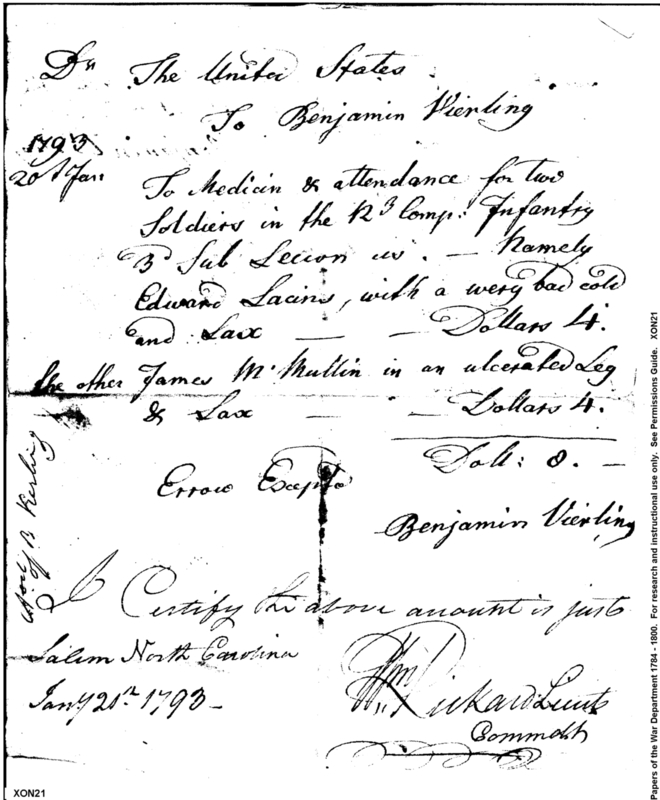 Dr The United States
To Benjamin Vierling
1793
20st Jan
To Medicin & attendance for two
Soldiers in the Rd Comp: Infantry
3 Sub Legion us. — Namely
Edward Lacins, with a wery bad cold
and Lax — — Dollars 4.
the other James McMullin in an ulcerated Leg
& Lax — — Dollars 4.
Doll: 8. —
Errow Excepto
Benjamin Vierling
Acct of B Verling
I Certify the above amount is just
Salem North Carolina
Jany 21st 1793 -
Wm Rickard Lieut
Commdt
XON21
Papers of the War Department 1784 - 1800. For research and instructional use only. See Permissions Guide. XON21